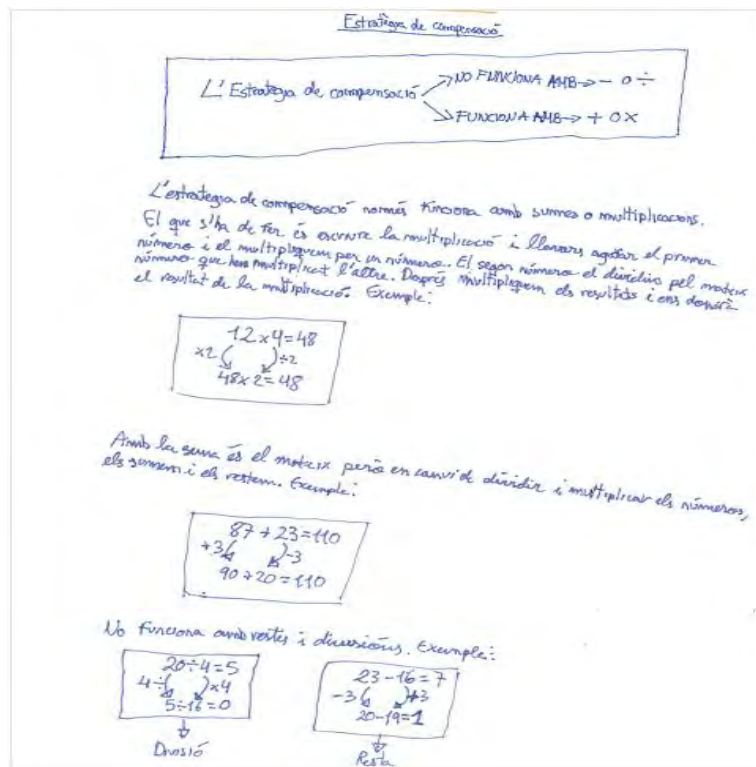 Estratègia de compensació
L'Estratègia de compensació → NO FUNCIONA AMB → - o ÷
→ FUNCIONA AMB → + o x
L'estratègia de compensació només funciona amb sumes o multiplicacions.
El que s'ha de fer és escriure la multiplicació i llavors agafar el primer
número i el multipliquem per un número. El segon número el dividim pel mateix
número que hem multiplicat l'altre. Després multipliquem els resultats i ens donarà
el resultat de la multiplicació. Exemple:
12 x 4 = 48
x2 ÷2
48 x 2 = 48
Amb la suma és el mateix però en canvi de dividir i multiplicar els números,
els sumem i els restem. Exemple:
87 + 23 = 110
+3 -3
90 + 20 = 110
No funciona amb restes i divisions. Exemple:
20 ÷ 4 = 5
4÷ x4
5 ÷ 16 = 0
Divisió
23 - 16 = 7
-3 +3
20 - 19 = 1
Resta